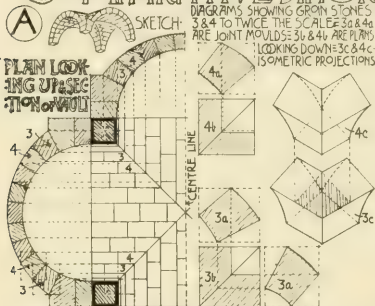 A
SKETCH·
DIAGRAMS SHOWING GROIN STONES
3 & 4 TO TWICE THE SCALE= 3a & 4a
ARE JOINT MOULDS= 3b & 4b ARE PLANS
LOOKING DOWN= 3c & 4c·
ISOMETRIC PROJECTIONS
PLAN LOOK-
-ING UP & SEC
-TION OF VAULT
3
4
4a
4b
4c
3
4
3
4
CENTRE LINE
3a
3c
3
4
4
3
3b
3a